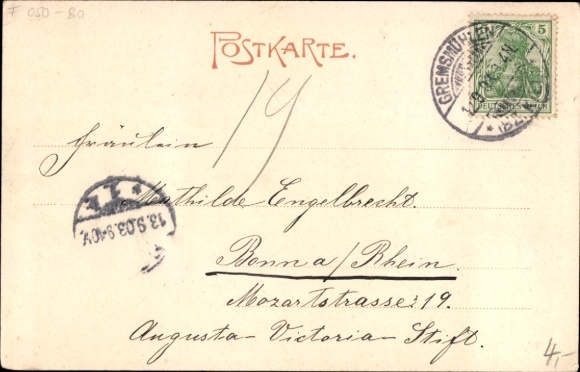 F 050-80
POSTKARTE.
5
DEUTSCHES REICH
GREMSMÜHLEN
19
Fräulein
Mathilde Engelbrecht.
13.9.03.9-10V.
Bonn a/Rhein.
Mozartstrasse 19.
Augusta-Victoria-Stift.
4,-